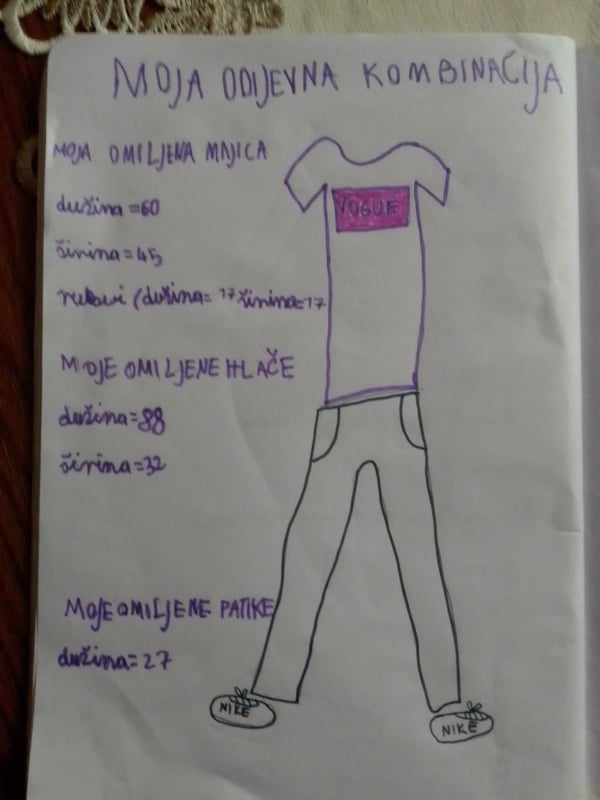 MOJA ODIJEVNA KOMBINACIJA
MOJA OMILJENA MAJICA
dužina=60
širina=45
rukavi (dužina=17 širina=17
VOGUE
MOJE OMILJENE HLAČE
dužina=88
širina=32
MOJE OMILJENE PATIKE
dužina=27
NIKE
NIKE